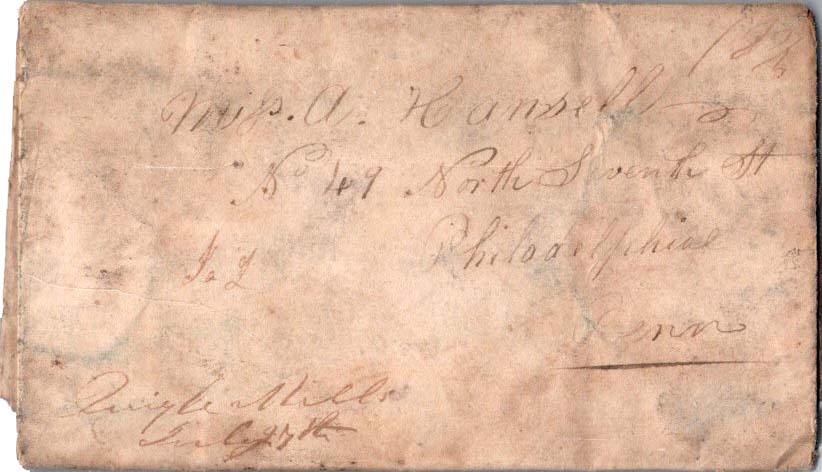 12½
Miss. A. Hansell
No 49 North Seventh St
Philadelphia
Penn
Mills
July 27th